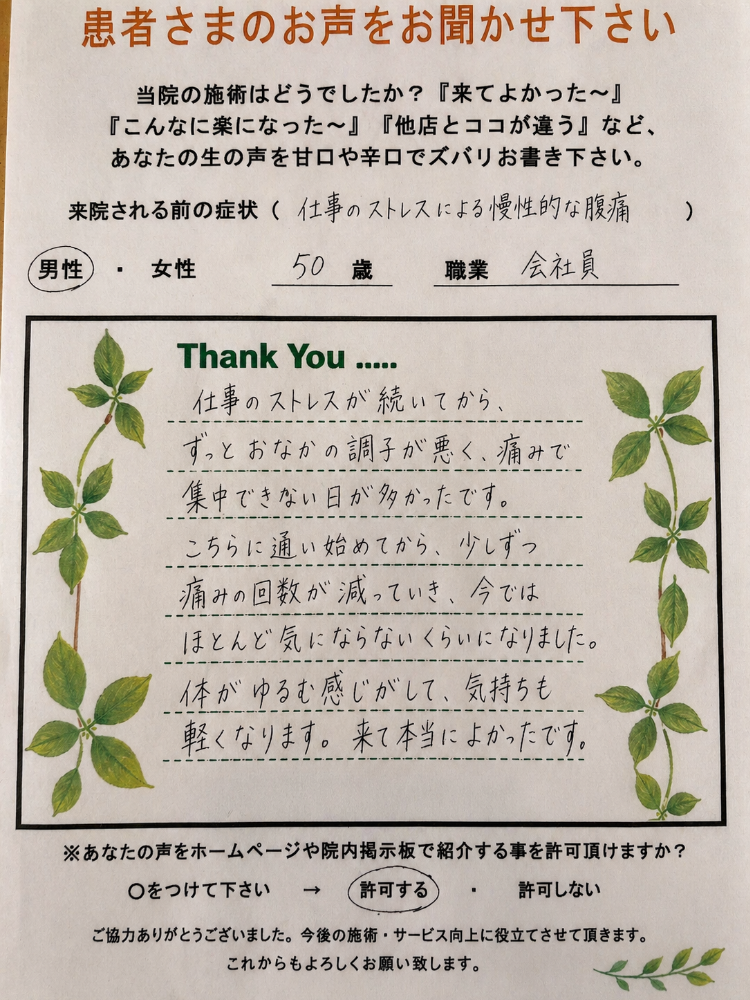 患者さまのお声をお聞かせ下さい
当院の施術はどうでしたか？『来てよかった～』
『こんなに楽になった～』『他店とココが違う』など、
あなたの生の声を甘口や辛口でズバリお書き下さい。
来院される前の症状（ 仕事のストレスによる慢性的な腹痛 ）
男性 ・ 女性 50 歳 職業 会社員
Thank You .....
仕事のストレスが続いてから、
ずっとおなかの調子が悪く、痛みで
集中できない日が多かったです。
こちらに通い始めてから、少しずつ
痛みの回数が減っていき、今では
ほとんど気にならないくらいになりました。
体がゆるむ感じがして、気持ちも
軽くなります。来て本当によかったです。
※あなたの声をホームページや院内掲示板で紹介する事を許可頂けますか？
〇をつけて下さい → 許可する ・ 許可しない
ご協力ありがとうございました。今後の施術・サービス向上に役立てさせて頂きます。
これからもよろしくお願い致します。